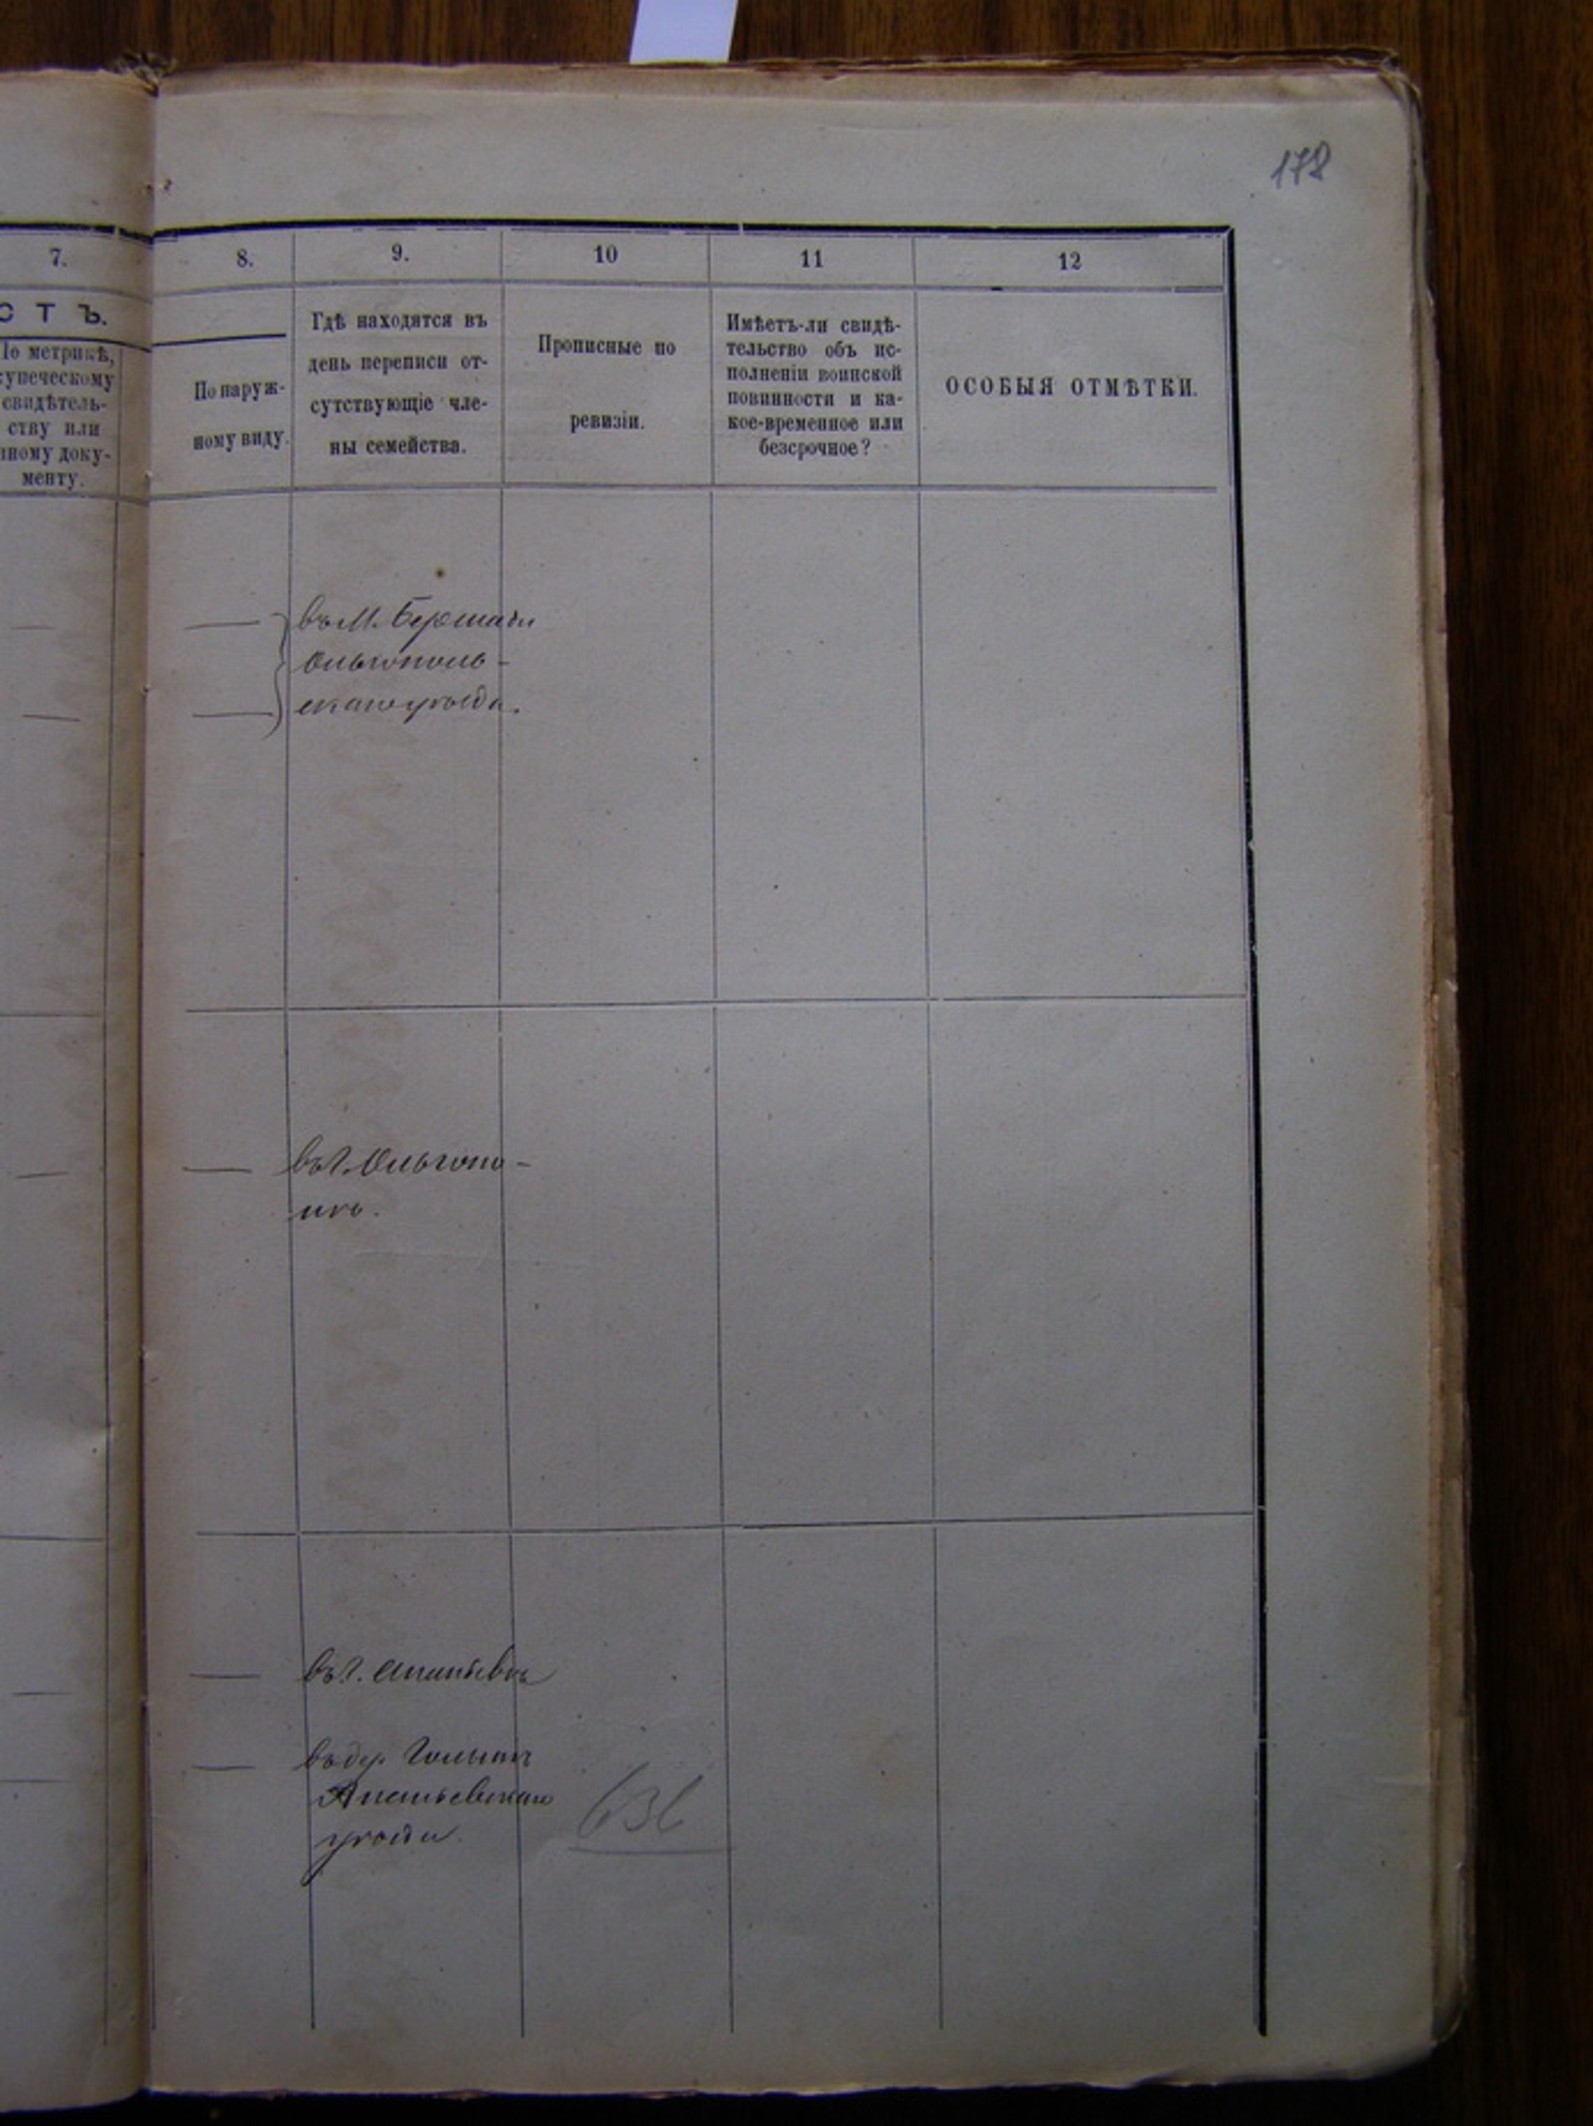 178
7.
8.
9.
10
11
12
СТЪ.
По метрикѣ,
купеческому
свидѣтель-
ству или
иному доку-
менту.
По наруж-
ному виду.
Гдѣ находятся въ
день переписи от-
сутствующіе чле-
ны семейства.
Прописные по
ревизіи.
Имѣетъ-ли свидѣ-
тельство объ ис-
полненіи воинской
повинности и ка-
кое-временное или
безсрочное?
ОСОБЫЯ ОТМѢТКИ.
въ М. Бершади
Ольгополь-
скаго уѣзда.
въ г. Ольгопо-
лѣ.
въ г. Ананьевѣ
въ дер.
Ананьевскаго
уѣзда.
636